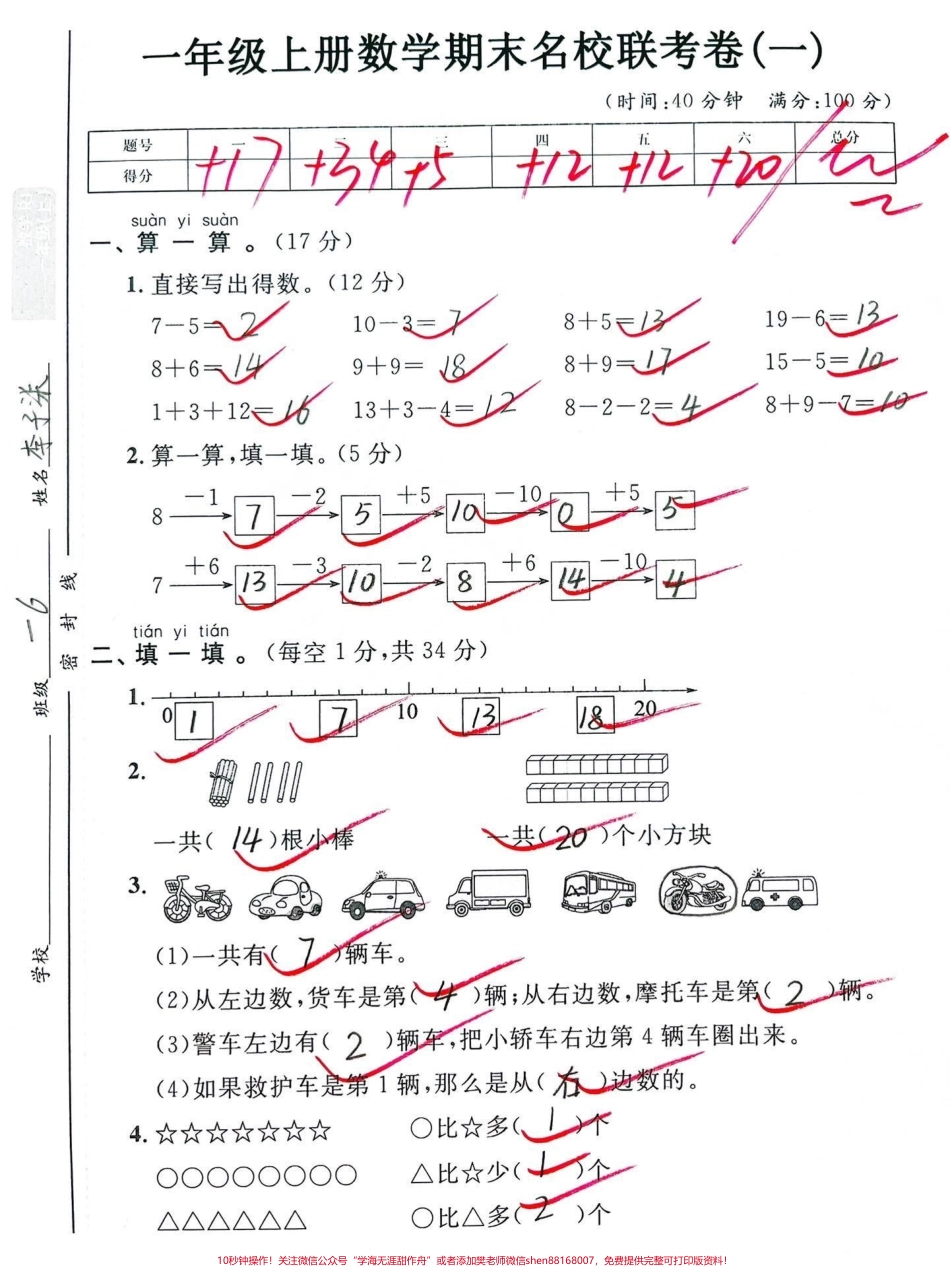 一年级上册数学期末名校联考卷(一)
(时间:40分钟 满分:100分)
题号 一 二 三 四 五 六 总分
得分 +17 +34 +5 +12 +12 +20
suàn yi suàn
一、算一算。(17分)
1. 直接写出得数。(12分)
7-5=2 10-3=7 8+5=13 19-6=13
8+6=14 9+9=18 8+9=17 15-5=10
1+3+12=16 13+3-4=12 8-2-2=4 8+9-7=10
2. 算一算,填一填。(5分)
-1 -2 +5 -10 +5
8 7 5 10 0 5
+6 -3 -2 +6 -10
7 13 10 8 14 4
tián yi tián
二、填一填。(每空1分,共34分)
1.
0 1 7 10 13 18 20
2.
一共(14)根小棒 一共(20)个小方块
3.
(1)一共有(7)辆车。
(2)从左边数,货车是第(4)辆;从右边数,摩托车是第(2)辆。
(3)警车左边有(2)辆车,把小轿车右边第4辆车圈出来。
(4)如果救护车是第1辆,那么是从(右)边数的。
4. ☆☆☆☆☆☆☆ ○比☆多(1)个
○○○○○○○○ △比☆少(1)个
△△△△△△ ○比△多(2)个
学校 班级 一6 姓名 李子柒
密封线
10秒钟操作!关注微信公众号“学海无涯甜作舟”或者添加樊老师微信shen88168007,免费提供完整可打印版资料!